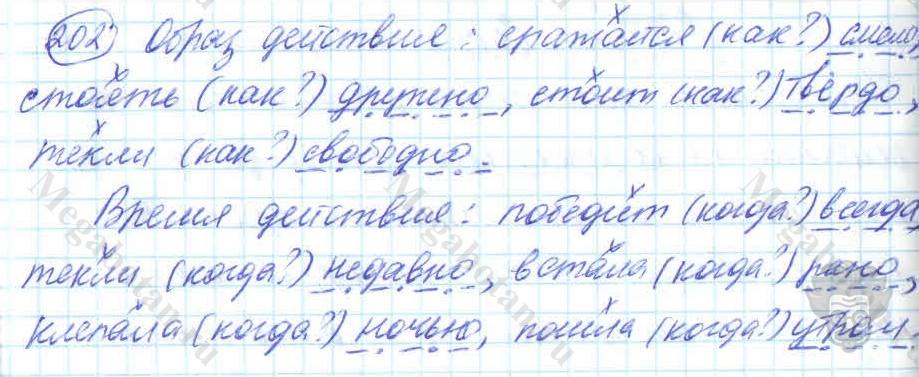 202 Образ действия: сражается (как?) смело
стоять (как?) дружно, стоит (как?) твёрдо,
текли (как?) свободно.
Время действия: победит (когда?) всегда,
текли (когда?) недавно, встала (когда?) рано,
клепала (когда?) ночью, пошла (когда?) утром.
Megabotan.ru
Megabotan.ru
Megabotan.ru